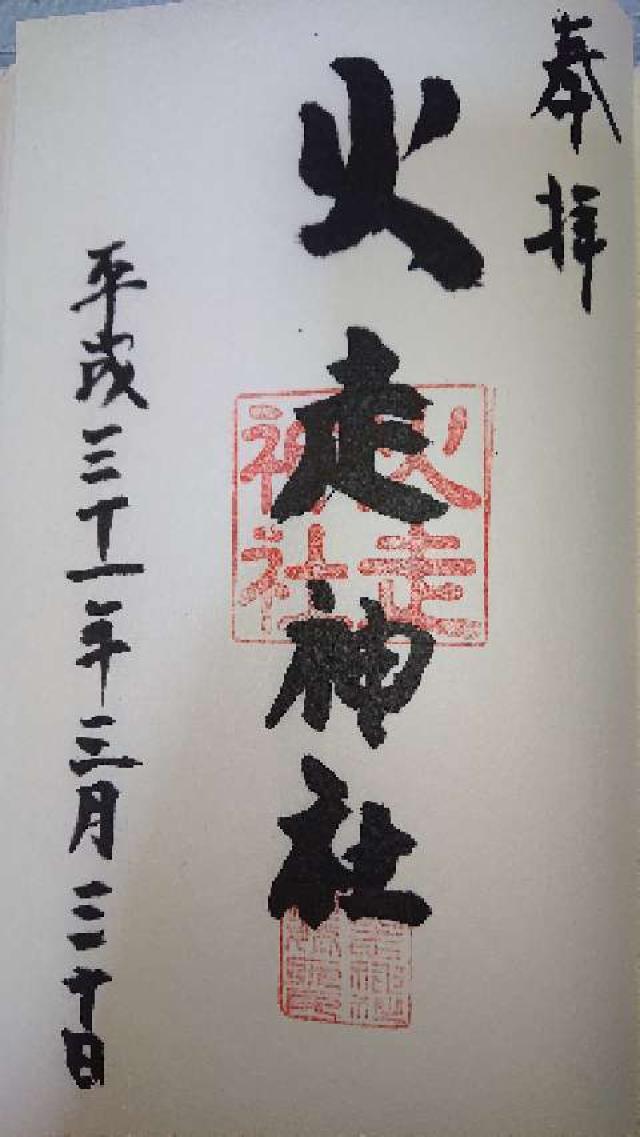 奉拝
火走神社
火走神社
平成三十一年三月三十日